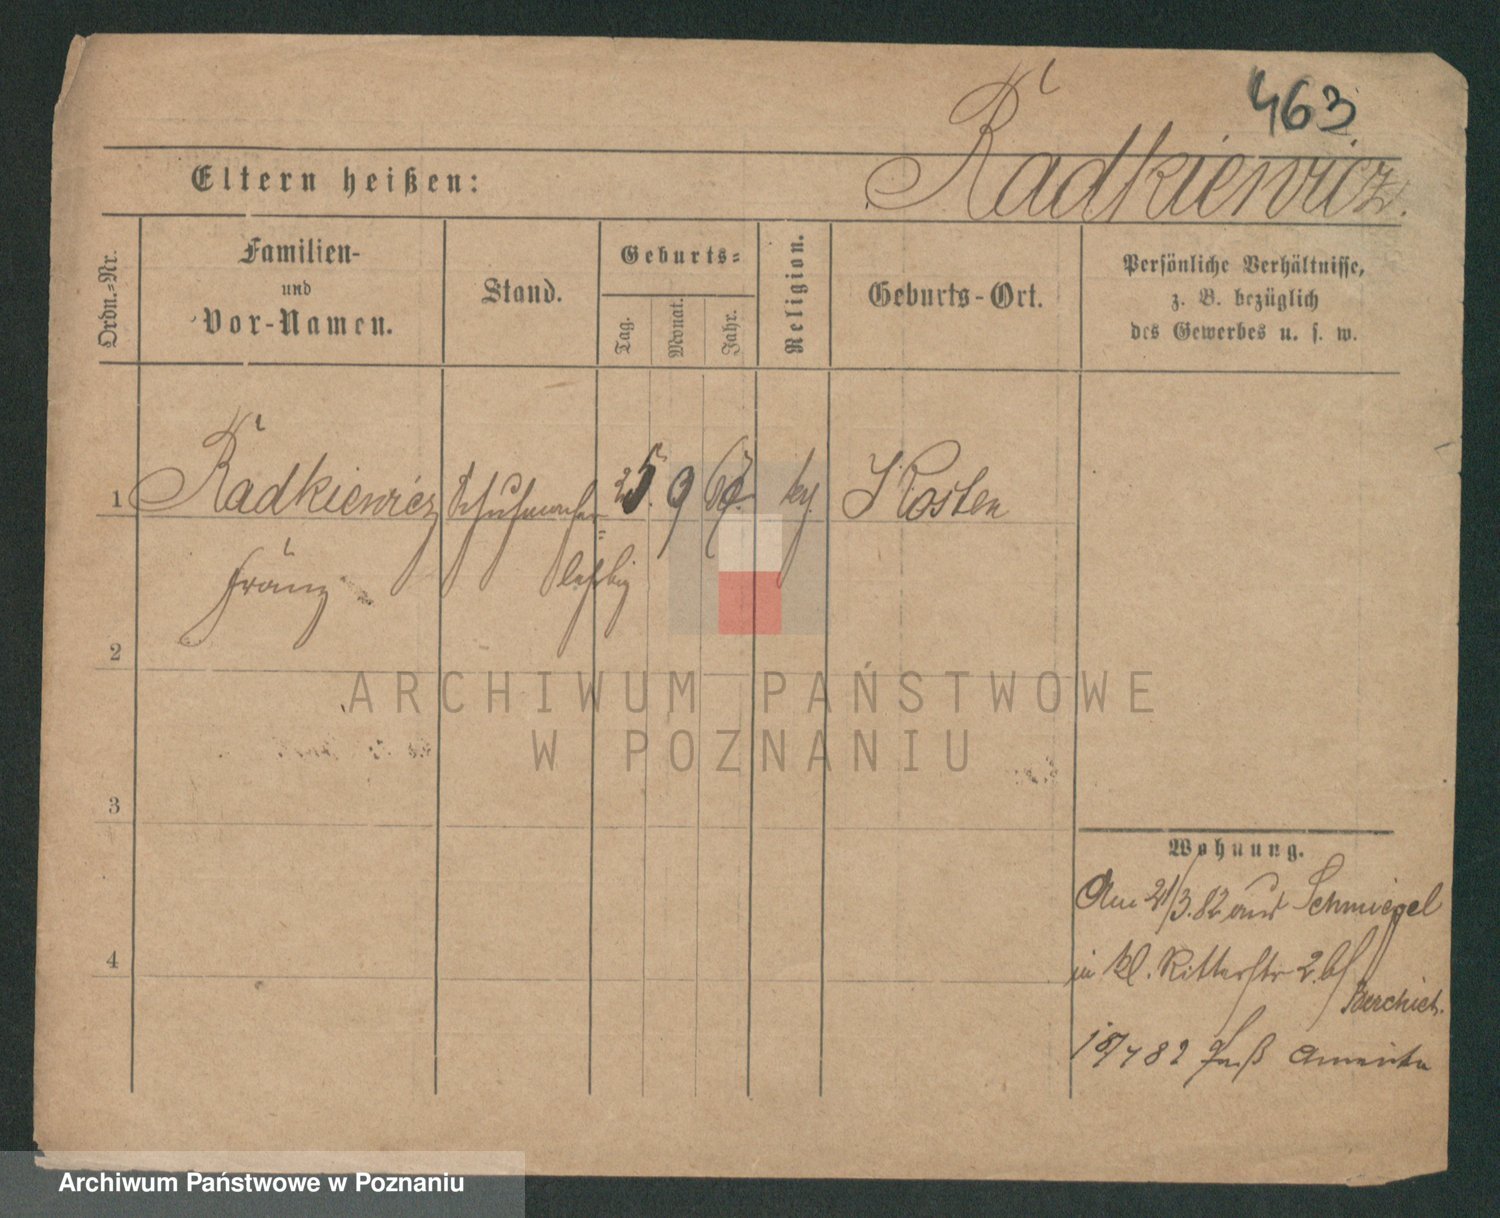 463
Radkiewicz.
Eltern heißen:
Ordn.-Nr.
Familien-
und
Vor-Namen.
Stand.
Geburts-
Tag.
Monat.
Jahr.
Religion.
Geburts-Ort.
Persönliche Verhältnisse,
z. B. bezüglich
des Gewerbes u. s. w.
1 Radkiewicz Schuhmacher= 25. 9 67. Kosten
Franz
2
ARCHIWUM PAŃSTWOWE
W POZNANIU
3
4
Wohnung.
Am 21/3.82 aus Schmiegel
in kl. Ritterstr 2. bei
18/4 82 Amerika
Archiwum Państwowe w Poznaniu